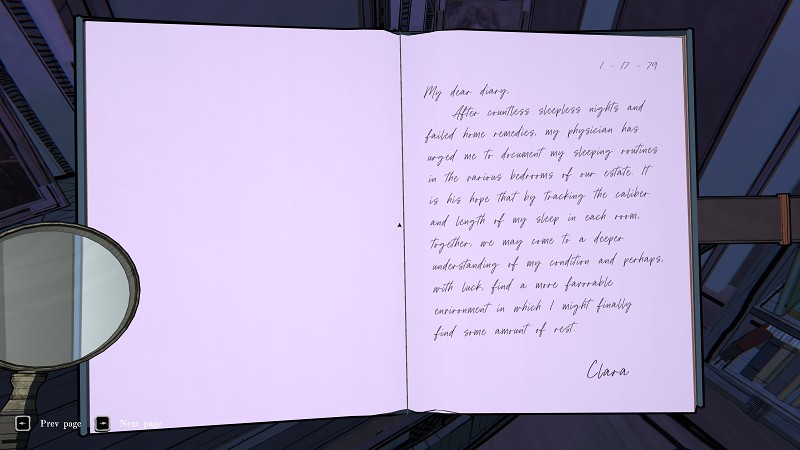 1 - 17 - 79
My dear diary,
After countless sleepless nights and
failed home remedies, my physician has
urged me to document my sleeping routines
in the various bedrooms of our estate. It
is his hope that by tracking the caliber
and length of my sleep in each room,
together, we may come to a deeper
understanding of my condition and perhaps,
with luck, find a more favorable
environment in which I might finally
find some amount of rest.
Clara
Prev page Next page